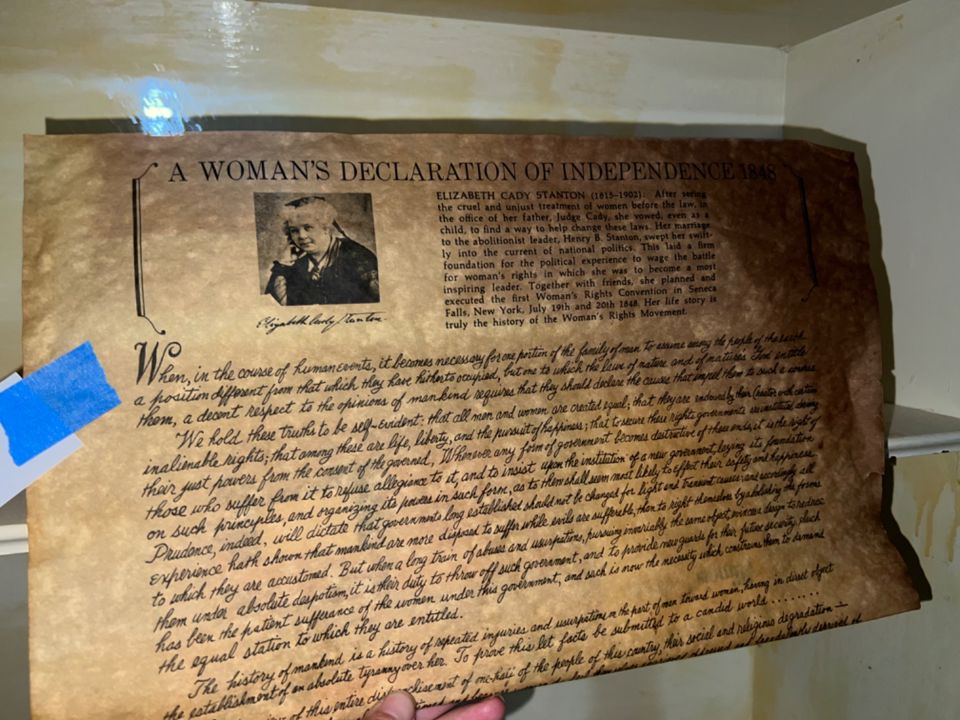 A WOMAN'S DECLARATION OF INDEPENDENCE 1848
ELIZABETH CADY STANTON (1815-1902). After seeing
the cruel and unjust treatment of women before the law, in
the office of her father, Judge Cady, she vowed, even as a
child, to find a way to help change these laws. Her marriage
to the abolitionist leader, Henry B. Stanton, swept her swift-
ly into the current of national politics. This laid a firm
foundation for the political experience to wage the battle
for woman's rights in which she was to become a most
inspiring leader. Together with friends, she planned and
executed the first Woman's Rights Convention in Seneca
Falls, New York, July 19th and 20th 1848. Her life story is
truly the history of the Woman's Rights Movement.
Elizabeth Cady Stanton
When, in the course of human events, it becomes necessary for one portion of the family of man to assume among the people of the earth
a position different from that which they have hitherto occupied, but one to which the laws of nature and of nature's God entitle
them, a decent respect to the opinions of mankind requires that they should declare the causes that impel them to such a course
We hold these truths to be self-evident: that all men and women are created equal; that they are endowed by their Creator with certain
inalienable rights; that among these are life, liberty, and the pursuit of happiness; that to secure these rights governments are instituted, deriving
their just powers from the consent of the governed, Whenever any form of government becomes destructive of these ends, it is the right of
those who suffer from it to refuse allegiance to it, and to insist upon the institution of a new government, laying its foundation
on such principles, and organizing its powers in such form, as to them shall seem most likely to effect their safety and happiness
Prudence, indeed, will dictate that governments long established should not be changed for light and transient causes; and accordingly all
experience hath shown that mankind are more disposed to suffer while evils are sufferable, than to right themselves by abolishing the forms
to which they are accustomed. But when a long train of abuses and usurpations, pursuing invariably the same object evinces design to reduce
them under absolute despotism, it is their duty to throw off such government, and to provide new guards for their future security. Such
has been the patient sufferance of the women under this government, and such is now the necessity which constrains them to demand
the equal station to which they are entitled.
The history of mankind is a history of repeated injuries and usurpation on the part of man toward woman, having in direct object
the establishment of an absolute tyranny over her. To prove this let facts be submitted to a candid world ........
view of this entire disenfranchisement of one-half of the people of this country, their social and religious degradation
deprived of